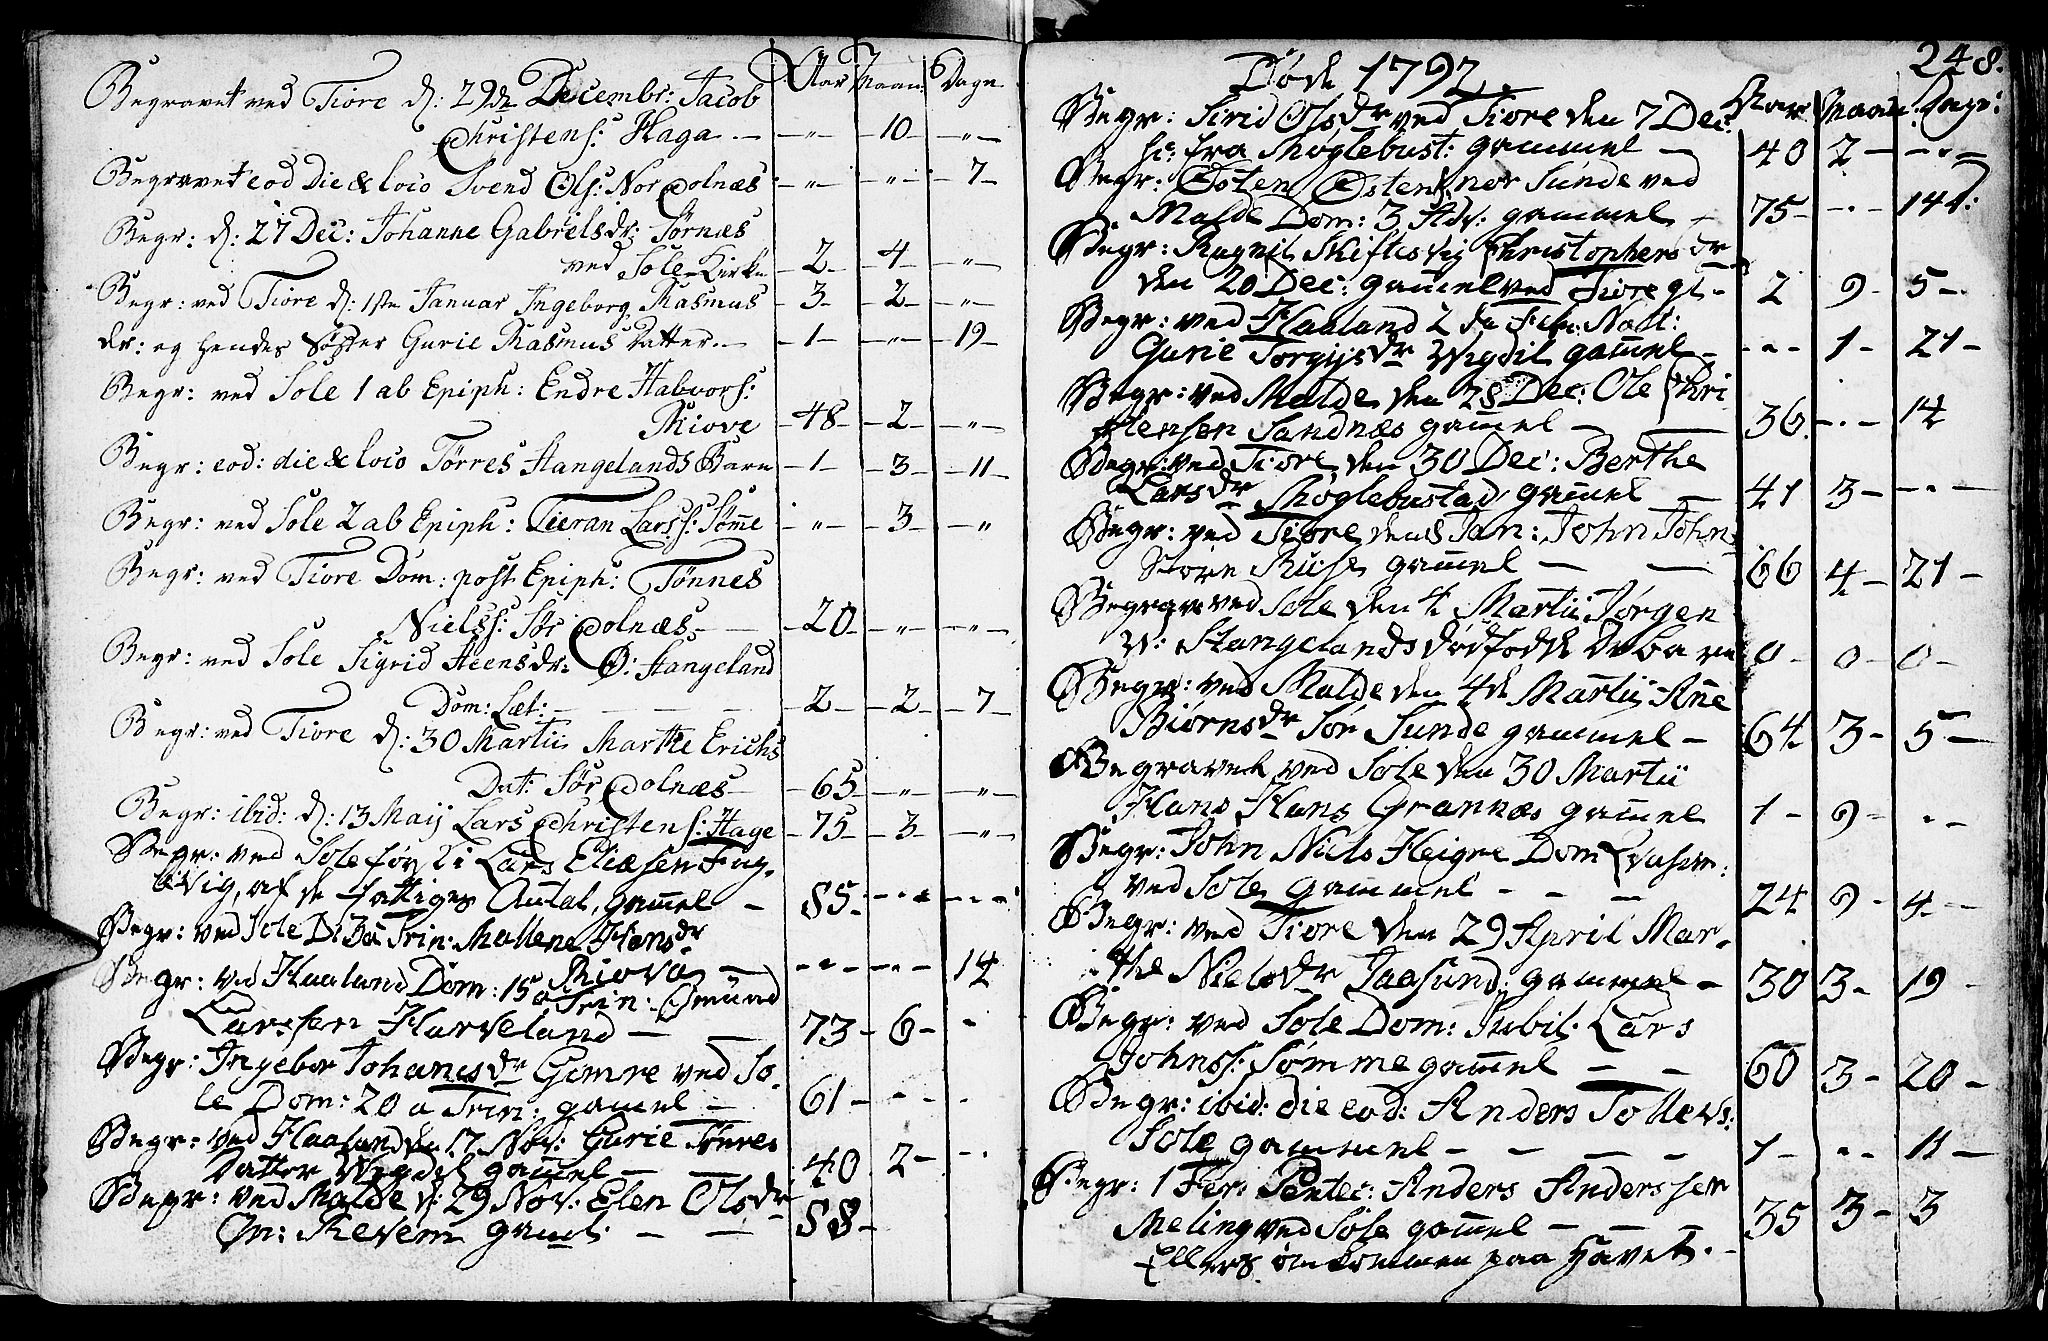 Aar Maan: Dage
Begravet ved Tiore d: 29de Decembr: Jacob
Christens: Haga — -"- 10 -"-
Begravet eod die & loco Svend Ols: Nor Dolnæs -"- -"- 7-
Begr: d: 27 Dec: Johanne Gabrielsdr: Sørnæs
ved Sole Kirke 2- 4- -"-
Begr: ved Tiore d: 1ste Januar Ingeborg Rasmus -3- -2- -"-
dr: og hendes Søster Gurie Rasmus Datter -1- -"- 19-
Begr: ved Sole 1 ab Epiph: Endre Halvors:
Kiove -48- -2- -"-
Begr: eod: die & loco Tørres Stangelands Barn -1- -3- -11-
Begr: ved Sole 2 ab Epiph: Tieran Larss: Sømme -"- -3- -"
Begr: ved Tiore Dom: post Epiph: Tønnes
Nielss: Sør Dolnæs -20- -"- -"-
Begr: ved Sole Sigrid Steensdr: Ø: Stangeland
Dom: Læt: — -2- -2- -7-
Begr: ved Tiore d: 30 Martii Marthe Erichs
Dat: Sør Dolnæs -65- -"- -"-
Begr: ibid: d: 13 Maij Lars Christens: Hage -75- -3- -"-
Begr: ved Sole Lars Eliasen
af de fattiges Antal, gammel - 85-
Begr: ved Sole D: 3 a Trin: Mallene Hansdr
Kiova — 14
Begr: ved Haaland Dom: 15 a Trin: Gmund
Larssen Harveland — 73- 6- -
Begr: Ingebor Johanesdr Gimre ved So-
le Dom: 20 a Trin: gamel — 61- - -
Begr: ved Haaland den 17 Nov: Gurie Tørres
Datter Wigdel gammel — 40 2- -
Begr: ved Malde d: 29 Nov: Elen Olsdr
Revem gaml: — 88-
248.
Døde 1792.
Aar Maan: Dage:
Begr: Sirid Olsdr ved Tiore den 7 Dec:
fra Møglebust: gammel — 40 2- -"-
Begr: Østen Østens: nor Sunde ved
Malde Dom: 3 Adv: gammel - 75- -"- 14d:
Begr: Ragnil Skiftesvig Christophersdr
den 20 Dec: gammel ved Tiore gl- 2 9- 5-
Begr: ved Haaland 2 de Feb: Nat:
Gurie Torgijsdr Wigdil gammel- -"- 1- 21-
Begr: ved Malde den 28 Dec: Ole Chri
stensen Sandnæs gammel — 36 -"- 14
Begr: ved Tiore den 30 Dec: Berthe
Larsdr Møglebustad gammel — 41 3- -"-
Begr: ved Tiore den 8 Jan: John John
Store Risse gammel — 66 4- 21-
Begrav: ved Sole den 4 Martii Jørgen
W: Stangelands dødfødde D: barn 0- 0- 0-
Begr: ved Malde den 4de Martii Ane
Biørnsdr Sør Sunde gammel- 64 3- 5-
Begravet ved Sole den 30 Martii
Hans Hans Grannæs gammel 1- 9- - -
Begr: John Niels Heigre Dom Qvasim:
ved Sole gammel — 24 9- 4-
Begr: ved Tiore den 29 April Mar-
the Nielsdr Jaasund: gammel- 30 3- 19-
Begr: ved Sole Dom: Jubil: Lars
Johnss: Sømme gammel — 60 3- 20-
Begr: ibid: die eod: Anders Tollevs:
Sole gammel — 1- - - 11-
Begr: 1 Fer: Pentec: Anders Anderssen
Meling ved Sole gammel — 35 3- 3
Ellers omkommen paa Havet.